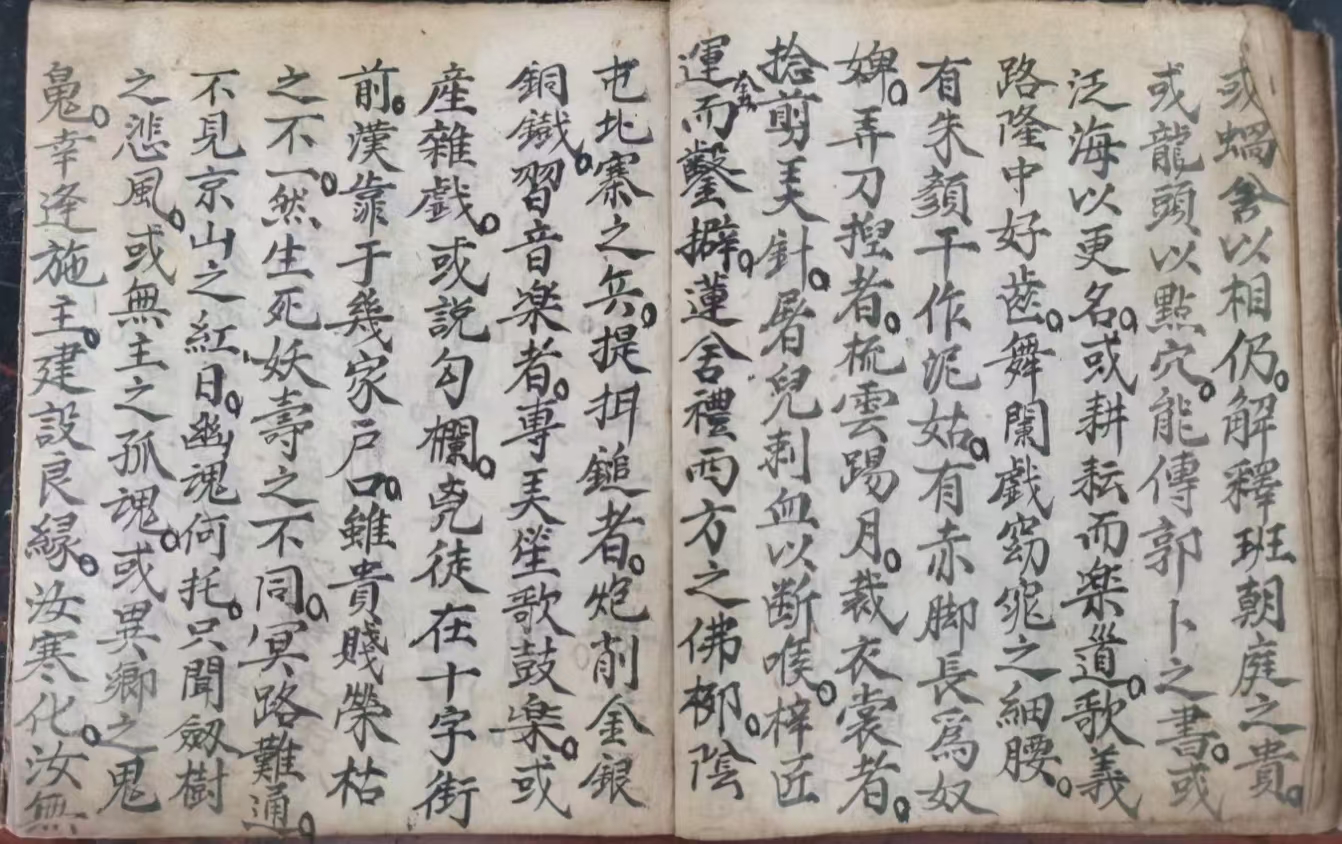 或蝸舍以相仍。解釋班朝庭之貴。
或龍頭以點穴。能傳郭卜之書。或
泛海以更名。或耕耘而楽道。歌義
路隆中好齒。舞闌戲窈窕之細腰。
有朱顏干作泥姑。有赤脚長爲奴
婢。弄刀捏者。梳雲踢月。裁衣裳者。
捨剪美針。屠兒刺血以断喉。梓匠
運金而鑿擗。蓮舍禮西方之佛。柳陰
屯北寨之兵。提抇鎚者。炮削金銀
銅鐵。習音楽者。專美笙歌鼓楽。或
産雜戲。或説勾欄。兇徒在十字街
前。漢靠于幾家戸口。雖貴賤榮枯
之不一。然生死妖壽之不同。冥路難通。
不見京山之紅日。幽魂何托。只聞劔樹
之悲風。或無主之孤魂。或異鄉之鬼
鬼。幸逢施主。建設良緣。汝寒化。汝無